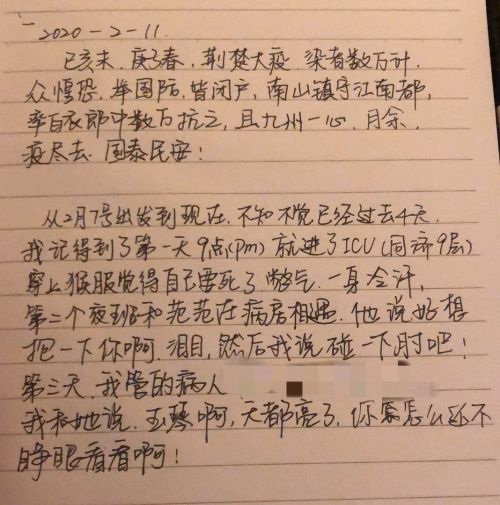 2020-2-11
己亥末，庚子春，荆楚大疫，染者数万计，
众惶恐，举国防，皆闭户，南山镇守江南都，
率白衣郎中数万抗之，且九州一心，月余，
疫尽去，国泰民安！
从2月7号出发到现在，不知不觉已经过去4天，
我记得到了第一天9点(pm)就进了ICU(同济9层)
穿上猴服觉得自己要死了，憋气，一身冷汗，
第二个夜班和范范在病房相遇，他说好想
抱一下你啊，泪目，然后我说碰一下肘吧！
第三天，我管的病人
我和她说，玉琴啊，天都亮了，你怎么还不
睁眼看看啊！